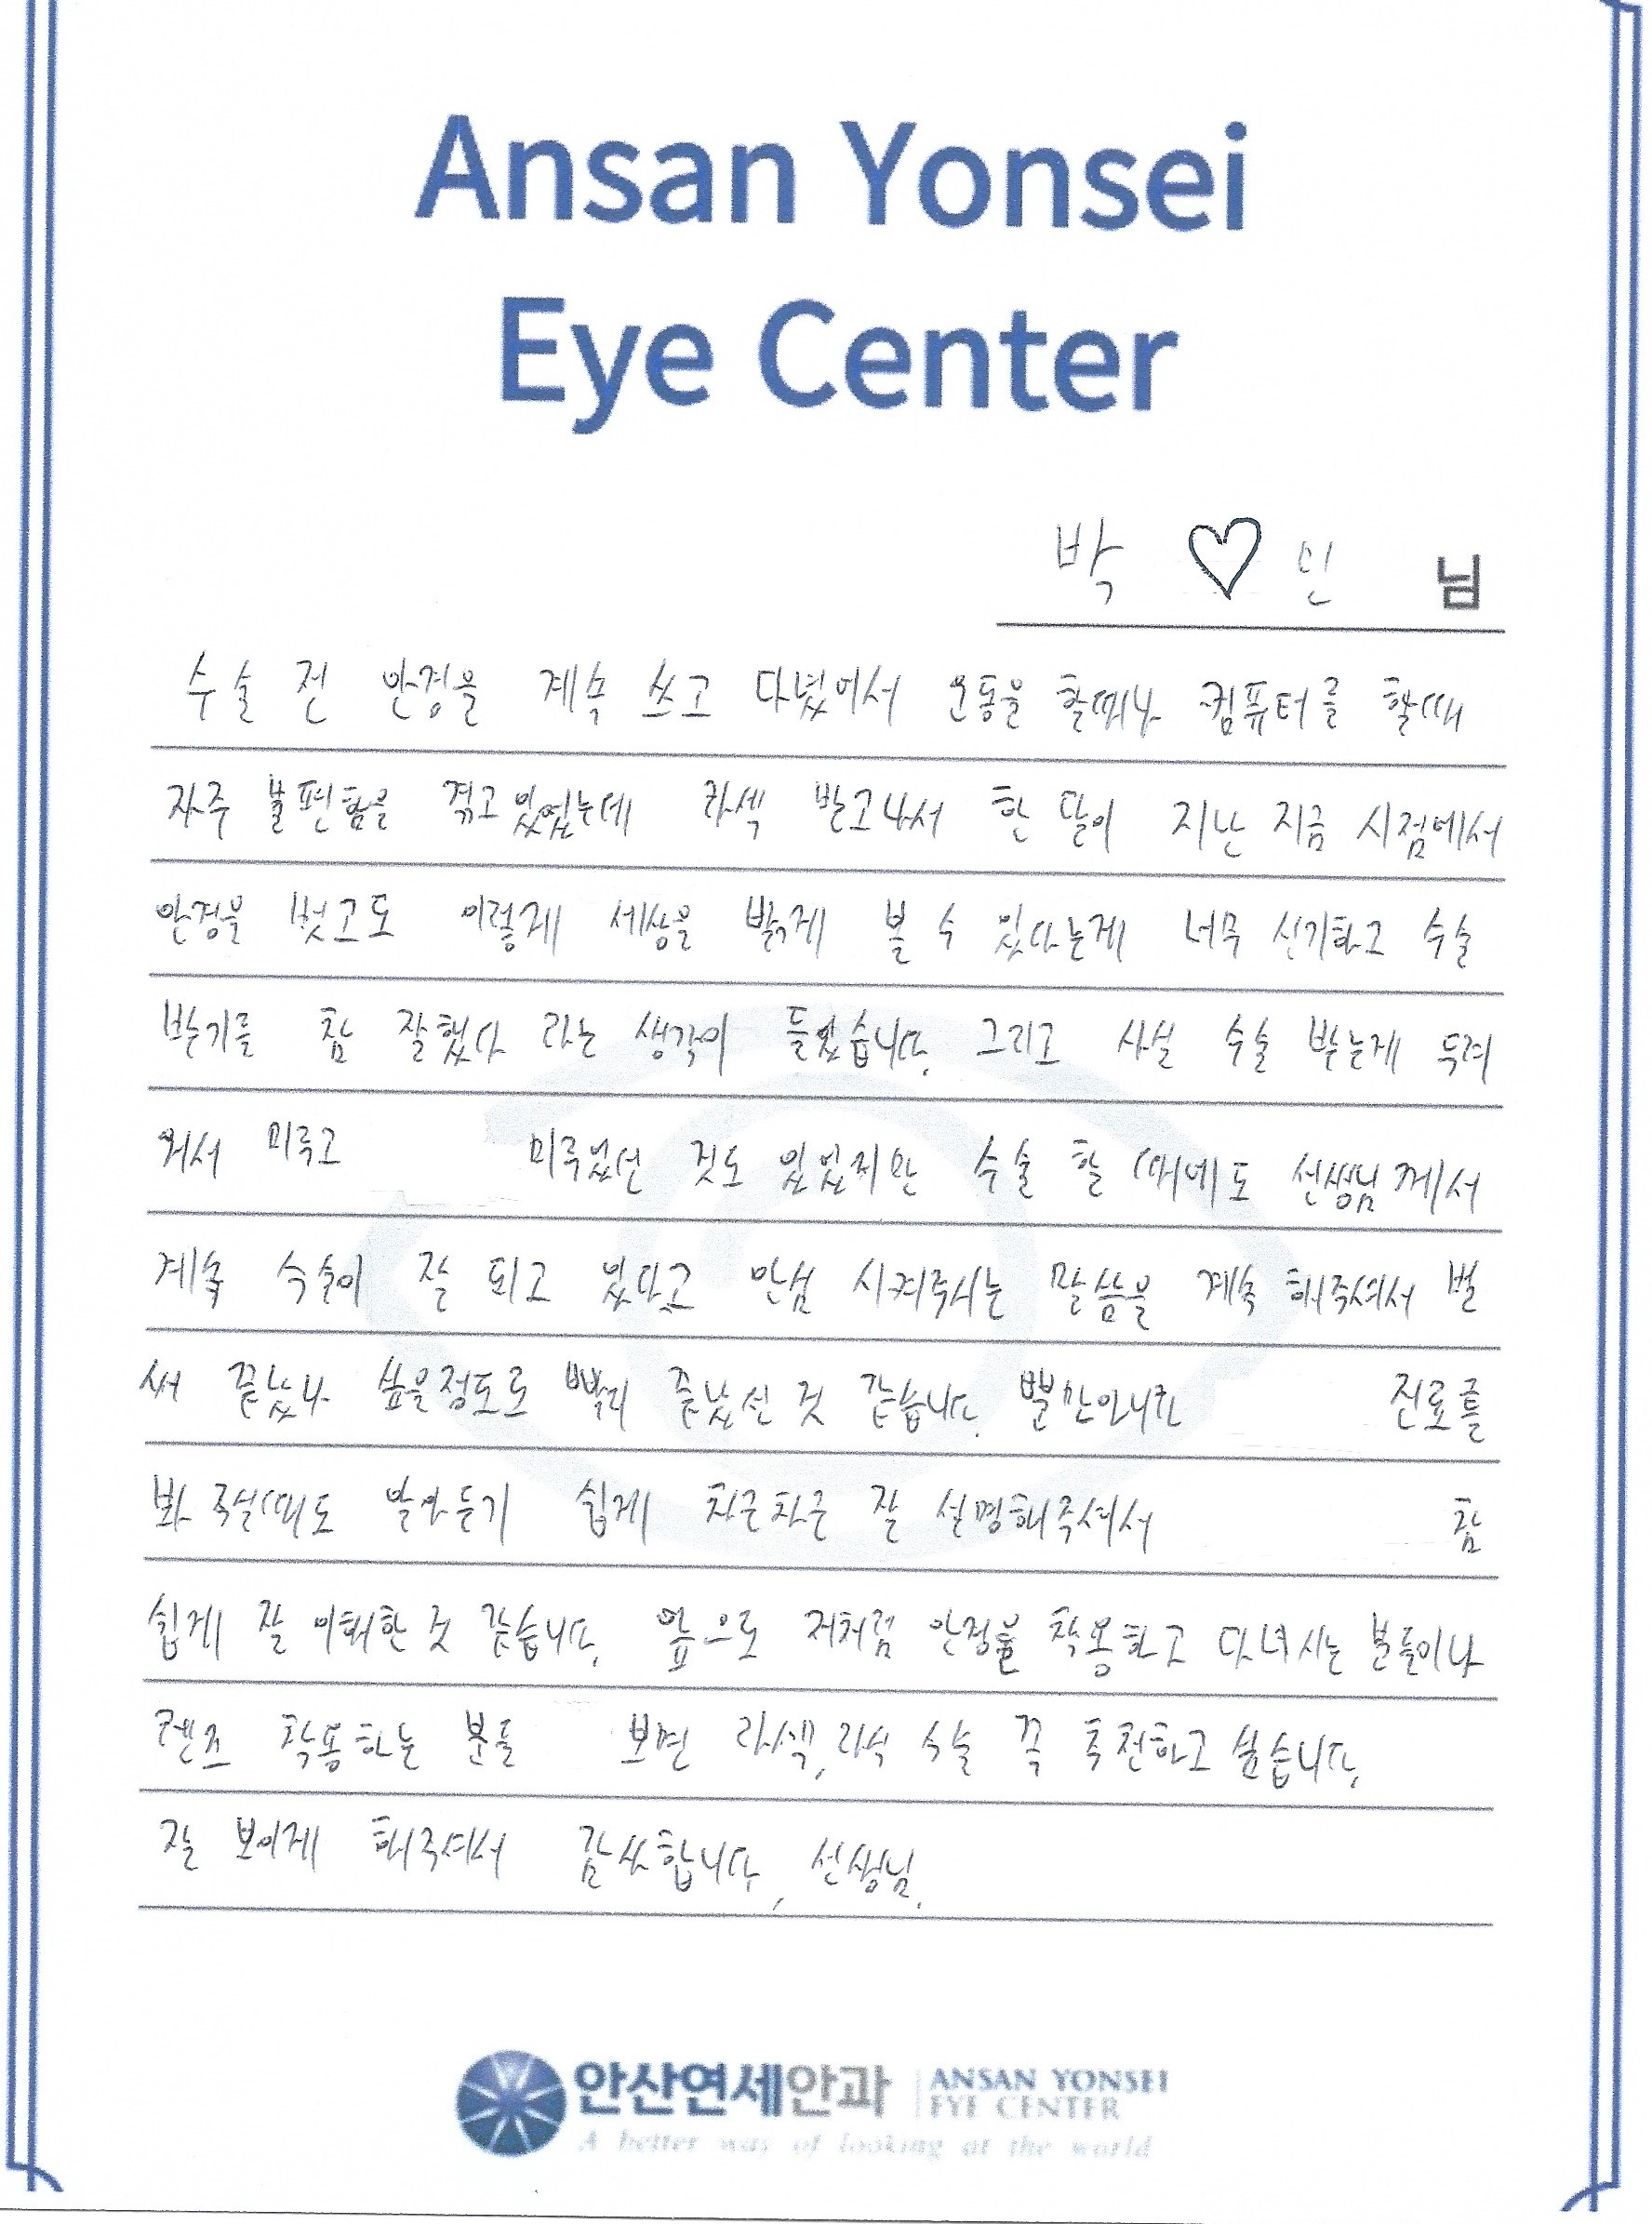 Ansan Yonsei
Eye Center
박 ♡ 민 님
수술 전 안경을 계속 쓰고 다녔어서 운동을 할때나 컴퓨터를 할때
자주 불편함을 겪고있었는데 라섹 받고나서 한 달이 지난 지금 시점에서
안경을 벗고도 이렇게 세상을 밝게 볼 수 있다는게 너무 신기하고 수술
받기를 참 잘했다 라는 생각이 들었습니다. 그리고 사실 수술 받는게 두려
워서 미루고 미루었던 것도 있었지만 수술 할 때에도 선생님께서
계속 수술이 잘 되고 있다고 안심 시켜주시는 말씀을 계속 해주셔서 벌
써 끝났나 싶을정도로 빨리 끝났던 것 같습니다. 뿐만아니라 진료를
봐 주실때도 알아듣기 쉽게 차근차근 잘 설명해주셔서 참
쉽게 잘 이해한 것 같습니다. 앞으로 저처럼 안경을 착용하고 다녀시는 분들이나
렌즈 착용하는 분들 보면 라섹, 라식 수술 꼭 추천하고 싶습니다.
잘 보이게 해주셔서 감사합니다, 선생님.
안산연세안과 ANSAN YONSEI
EYE CENTER
A better way of looking at the world